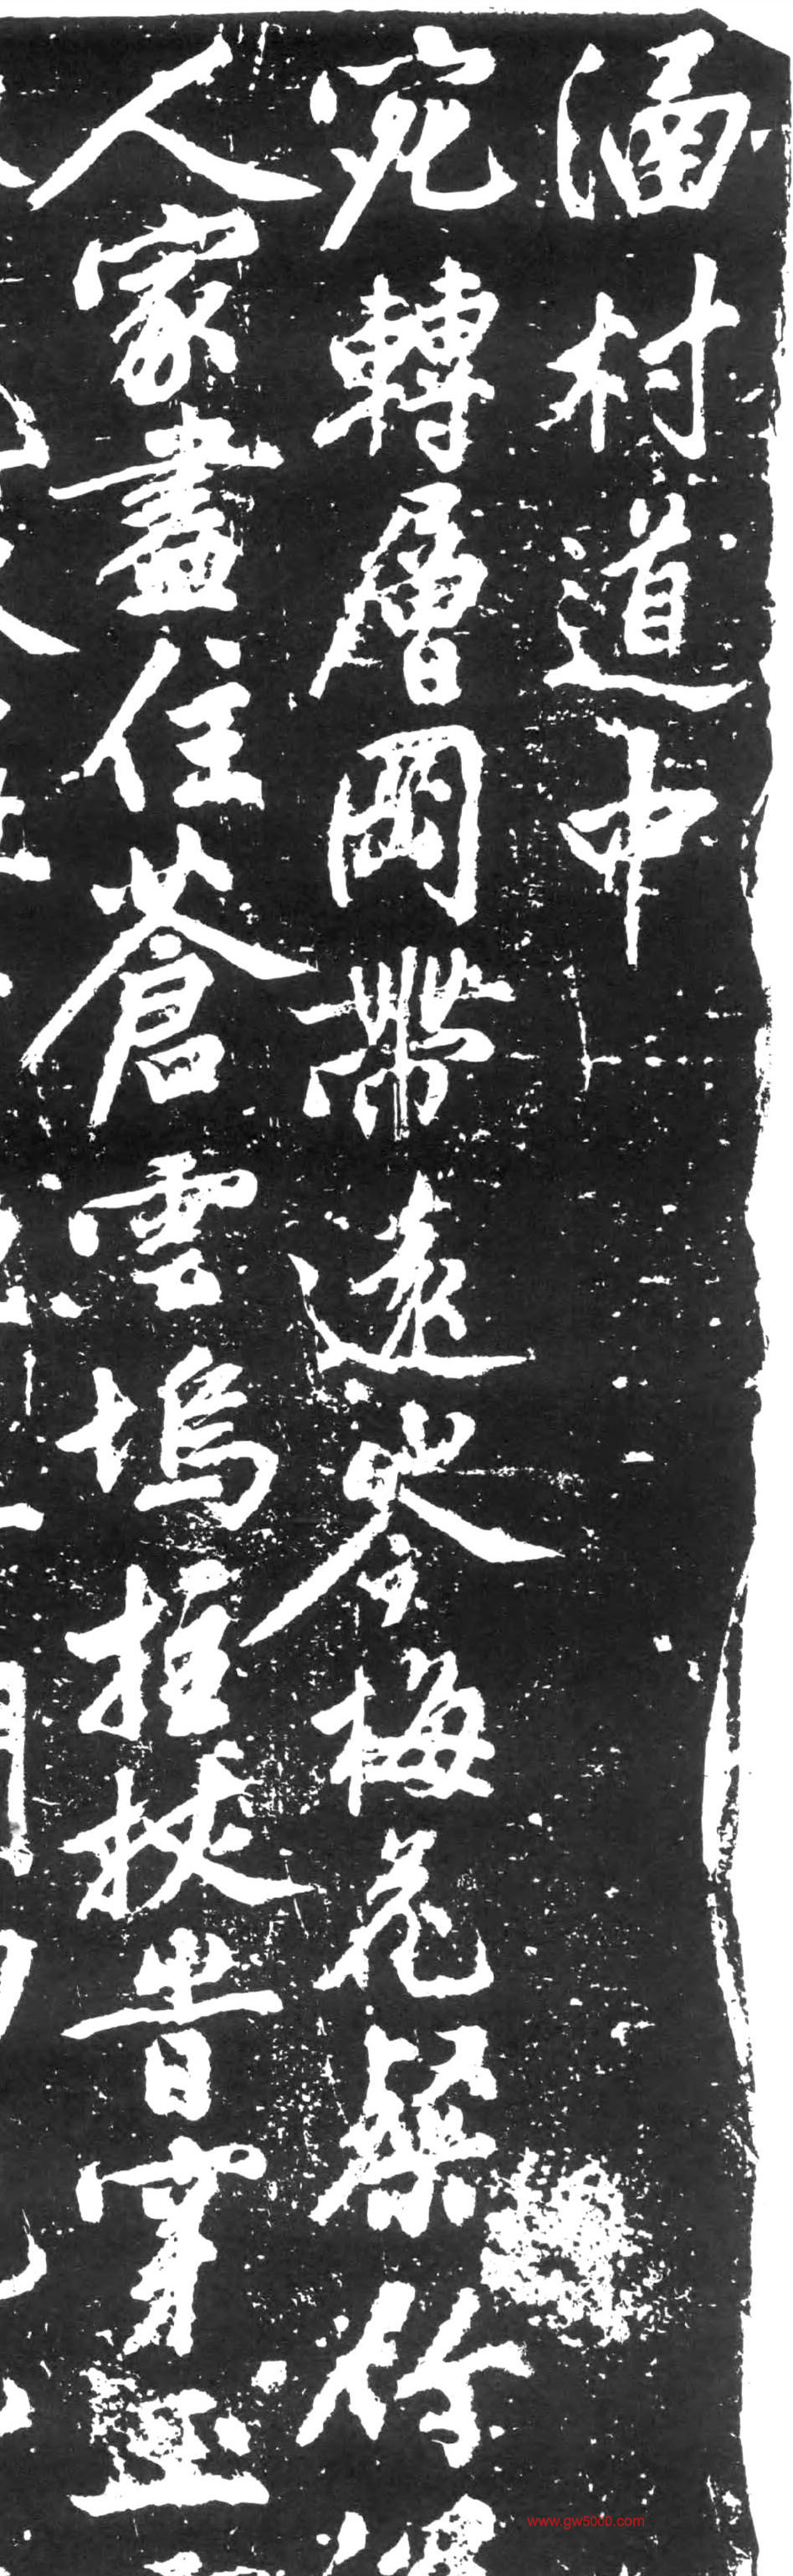 涵村道中
宛轉層岡帶遠岑梅花粲
人家盡住蒼雲塢拄杖昔穿
www.gw5000.com